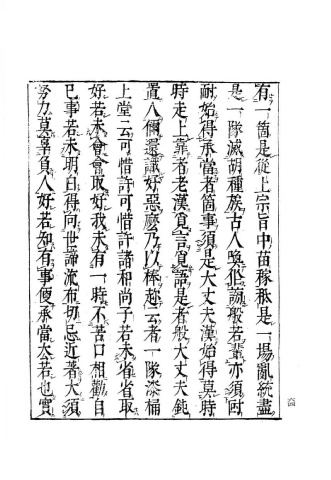 有一箇是從上宗旨中苗稼秪是一場亂統盡
是一隊滅胡種族古人喚作謗般若輩亦須尀
耐始得承當者箇事須是大丈夫漢始得莫時
時走上靠者老漢覓言覓語是者般大丈夫鈍
置人儞還識好惡麼乃以棒趂云者一隊漆桶
上堂云可惜許可惜許諸和尚子若未省省取
好若未會會取好我未有一時不苦口相勸自
已事若未明白得向世諦流布切忌近著大須
努力莫辜負人好若知有事便承當去若也實